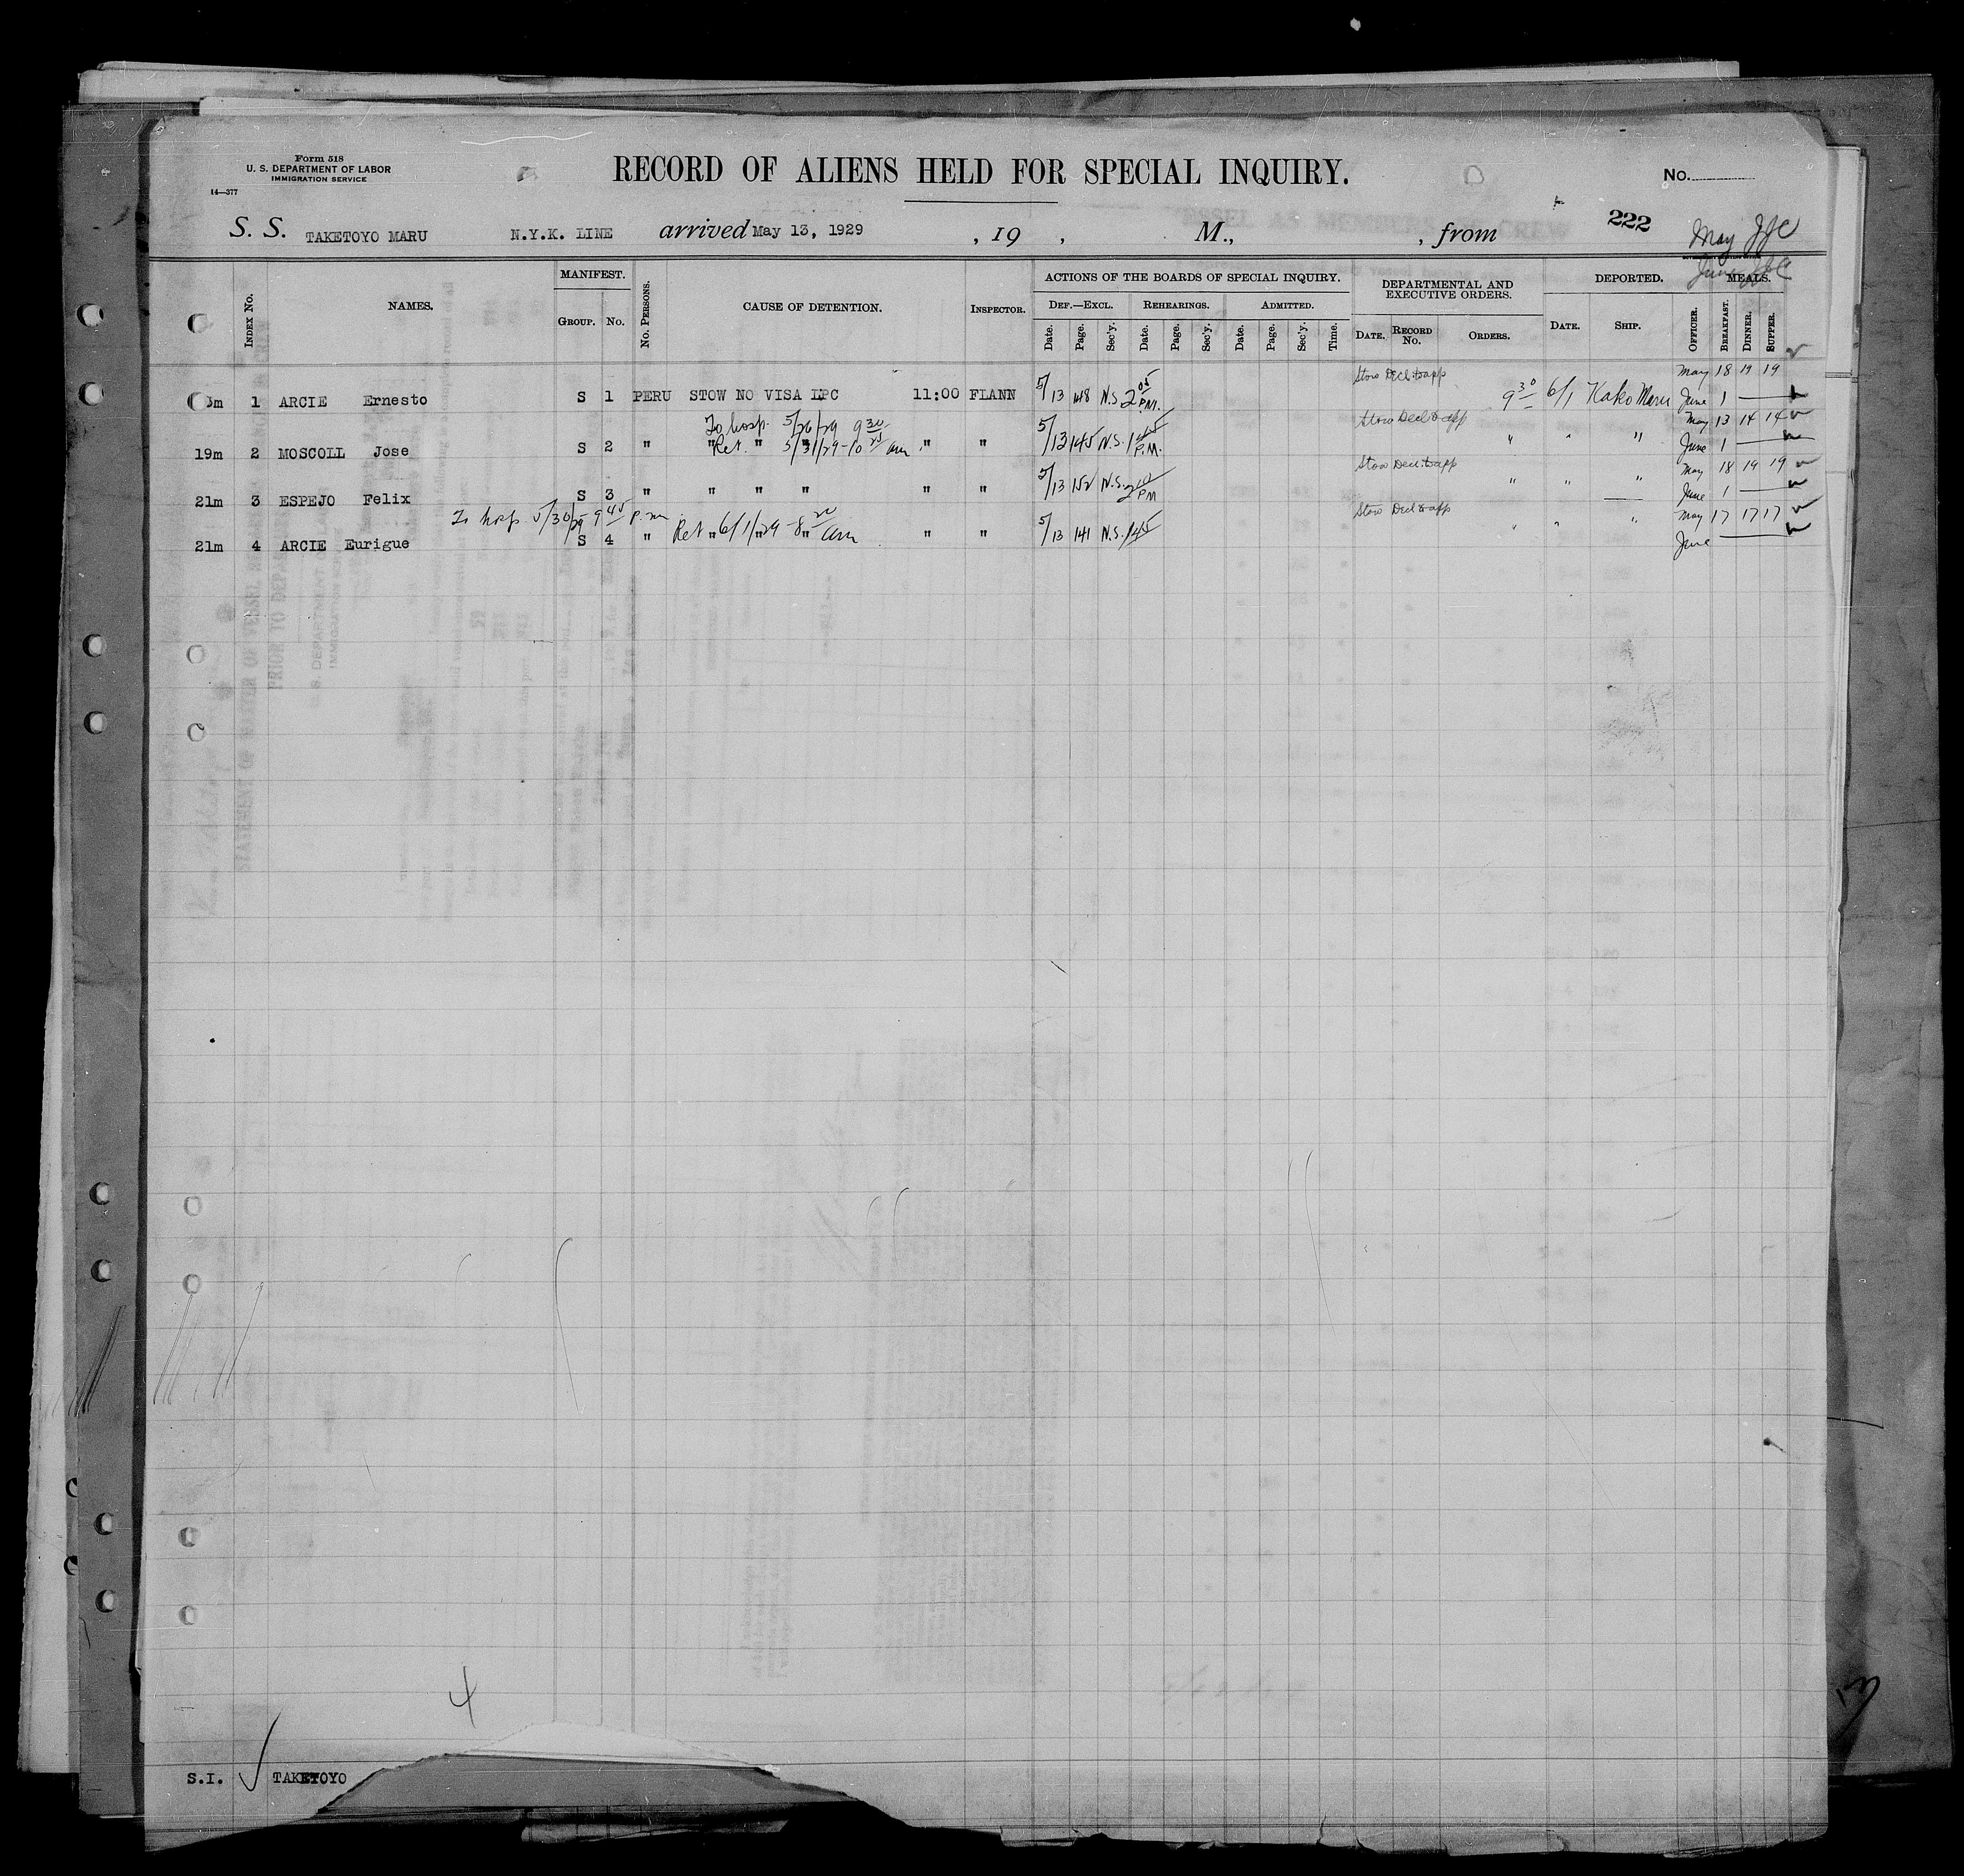 Form 518
U. S. DEPARTMENT OF LABOR
IMMIGRATION SERVICE
14—377
RECORD OF ALIENS HELD FOR SPECIAL INQUIRY.
No.
222
S. S. TAKETOYO MARU N.Y.K. LINE arrived May 13, 1929 , 19 , M., , from
May JJC
June
INDEX No. NAMES. MANIFEST. GROUP. No. No. PERSONS. CAUSE OF DETENTION. INSPECTOR. ACTIONS OF THE BOARDS OF SPECIAL INQUIRY. DEF.—EXCL. REHEARINGS. ADMITTED. DEPARTMENTAL AND EXECUTIVE ORDERS. DEPORTED. MEALS.
Date. Page. Sec'y. Date. Page. Sec'y. Date. Page. Sec'y. Time. DATE. RECORD No. ORDERS. DATE. SHIP. OFFICER. BREAKFAST. DINNER. SUPPER.
Stow Decl to app May 18 19 19
m 1 ARCIE Ernesto S 1 PERU STOW NO VISA LPC 11:00 FLANN 5/13 148 N.S. 2 05 P.M. 9 30 6/1 Kako Maru June 1
To hosp. 5/26/29 9 30 Stow Decl to app May 13 14 14
19m 2 MOSCOLL Jose S 2 " " Ret. " 5/31/29-10 25 am " " 5/13 145 N.S. 1 45 P.M. " " " June 1
Stow Decl to app May 18 19 19
21m 3 ESPEJO Felix S 3 " " " " " " 5/13 152 N.S. 2 10 PM " " " June 1
To hosp 5/30/29 9 45 p.m. Stow Decl to app May 17 17 17
21m 4 ARCIE Eurigue S 4 " Ret " 6/1/29 8 20 am " " 5/13 141 N.S. 1 45 " " " June
4
S.I. TAKETOYO